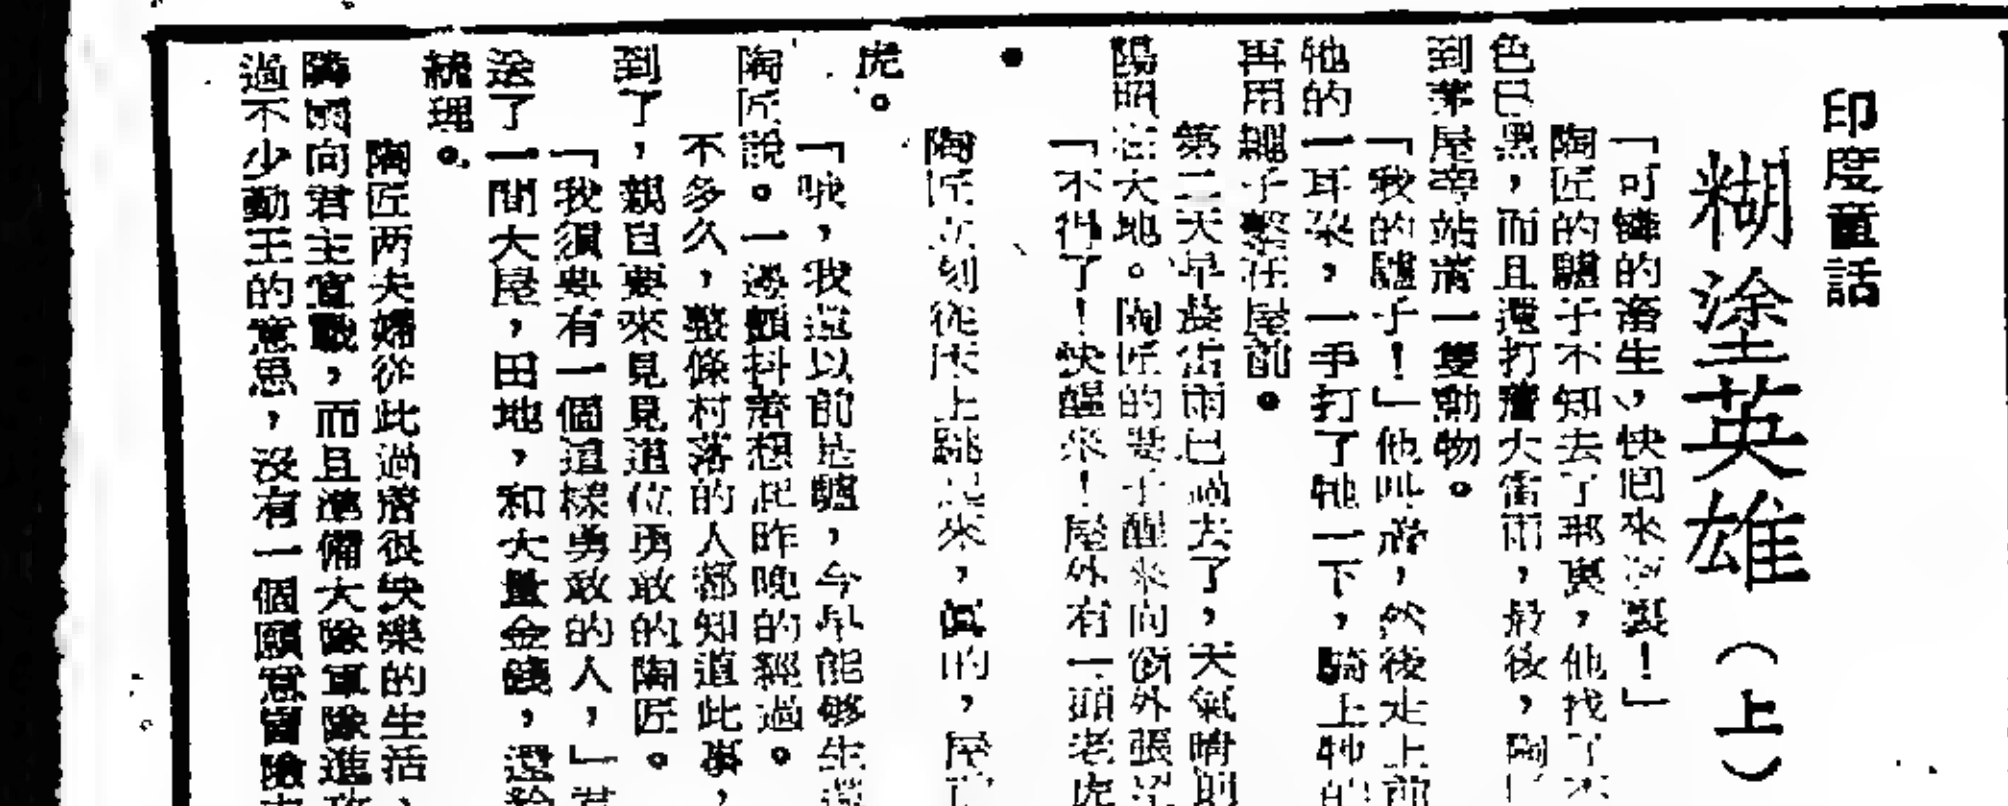 印度童話
糊塗英雄（上）
「可憐的畜生、快囘來這裏！」
陶匠的驢子不知去了那裏，他找了
色已黑，而且還打着大雷雨，最後，陶
到茅屋旁站着一隻動物。
「我的驢子！」他叫着，然後走上前
牠的一耳朵，一手打了牠一下，騎上牠的
再用繩子繫在屋前。
第二天早晨雷雨已過去了，天氣晴朗
陽照在大地。陶匠的妻子醒來向窗外張望
「不得了！快醒來！屋外有一頭老虎
陶匠立刻從床上跳起來，眞的，屋
虎。
「哦，我還以前是驢，今早能够生還
陶匠說。一邊顫抖着想起昨晚的經過。
不多久，整條村落的人都知道此事，
到了，親自要來見見這位勇敢的陶匠。
「我須要有一個這樣勇敢的人，」君
送了一間大屋，田地，和大量金錢，還給
統理。
陶匠两夫婦從此過着很快樂的生活、
隣國向君主宣戰，而且準備大隊軍隊進攻
過不少勳王的意思，沒有一個願意冒險